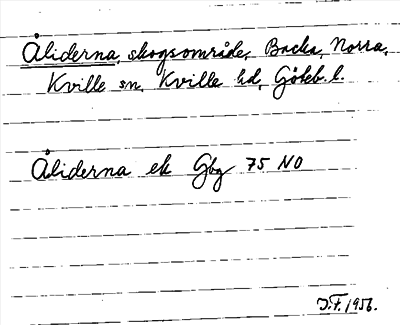 Åliderna, skogsområde, Backa, Norra,
Kville sn, Kville hd, Göteb. l.
Åliderna ek Gbg 75 NO
J.F. 1956.